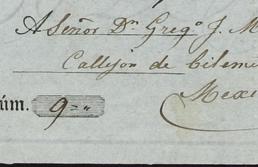 A Señor Dn. Grego. J. M
Callejon de bilem
Mexi
úm. 9="